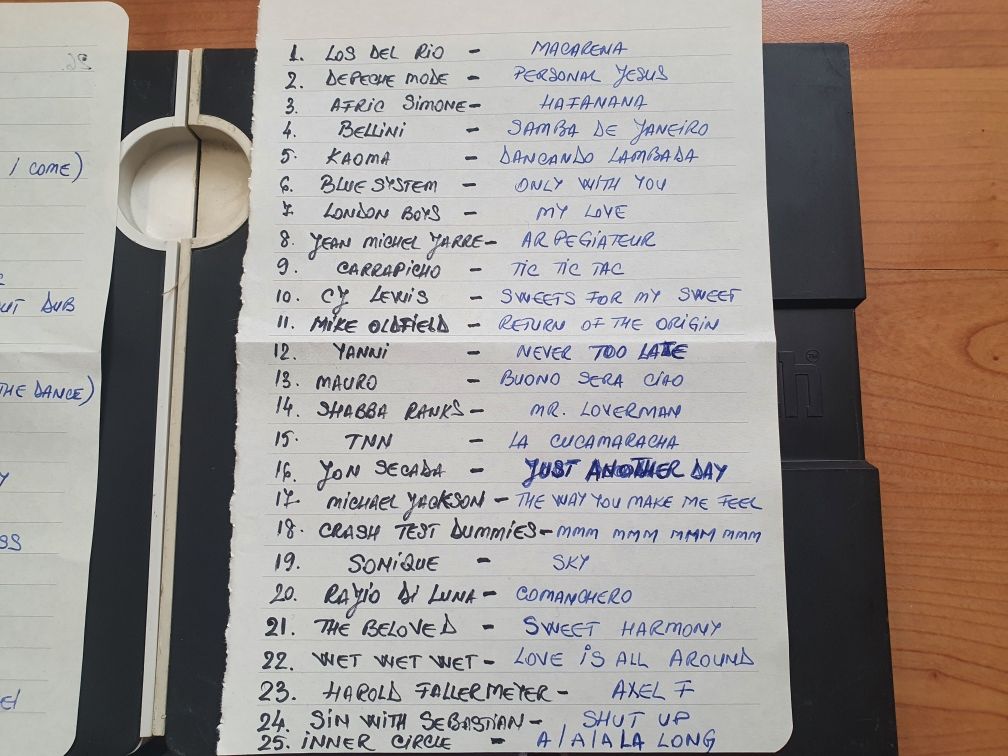 I COME)
UT DUB
THE DANCE)
Y
SS
1. LOS DEL RIO - MACARENA
2. DEPECHE MODE - PERSONAL JESUS
3. AFRIC SIMONE - HAFANANA
4. BELLINI - SAMBA DE JANEIRO
5. KAOMA - DANCANDO LAMBADA
6. BLUE SYSTEM - ONLY WITH YOU
7. LONDON BOYS - MY LOVE
8. JEAN MICHEL JARRE - ARPEGIATEUR
9. CARRAPICHO - TIC TIC TAC
10. CJ LEWIS - SWEETS FOR MY SWEET
11. MIKE OLDFIELD - RETURN OF THE ORIGIN
12. YANNI - NEVER TOO LATE
13. MAURO - BUONO SERA CIAO
14. SHABBA RANKS - MR. LOVERMAN
15. TNN - LA CUCAMARACHA
16. JON SECADA - JUST ANOTHER DAY
17. MICHAEL JACKSON - THE WAY YOU MAKE ME FEEL
18. CRASH TEST DUMMIES - MMM MMM MMM MMM
19. SONIQUE - SKY
20. RAJIO DI LUNA - COMANCHERO
21. THE BELOVED - SWEET HARMONY
22. WET WET WET - LOVE IS ALL AROUND
23. HAROLD FALLERMEYER - AXEL F
24. SIN WITH SEBASTIAN - SHUT UP
25. INNER CIRCLE - A/A/A LA LONG
h™